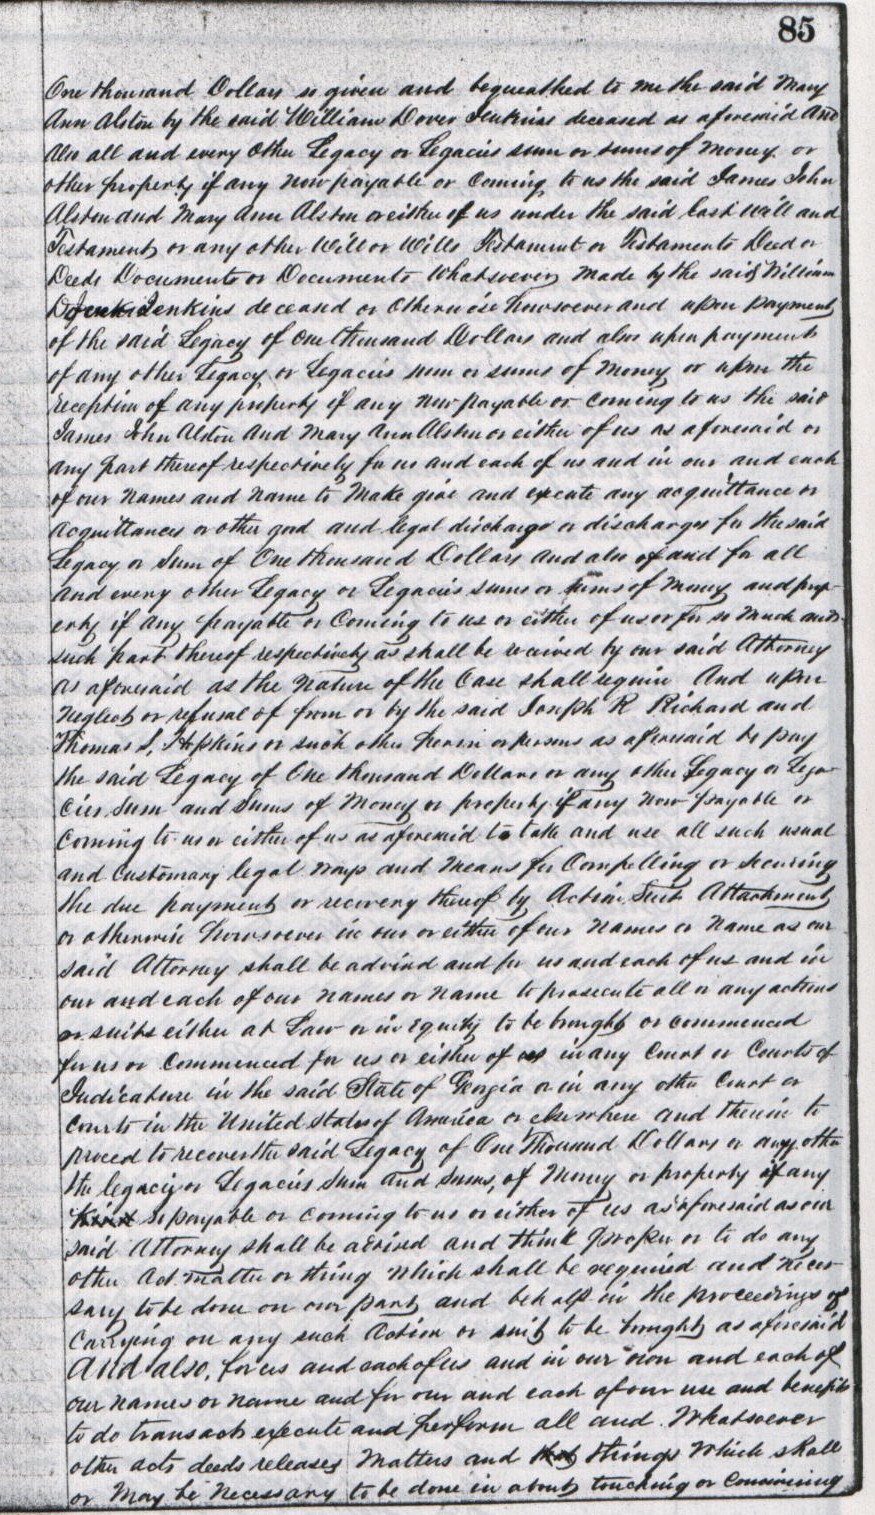 85
One thousand Dollars so given and bequeathed to me the said Mary
Ann Alston by the said William Dover Jenkins deceased as aforesaid And
Also all and every other Legacy or Legacies sum or sums of money or
other property if any now payable or Coming to us the said James John
Alston and Mary Ann Alston or either of us under the said last will and
Testament or any other Will or Wills Testament or Testaments Deed or
Deeds Documents or Documents Whatsoever made by the said William
D Jenkins deceased or Otherwise howsoever and upon payment
of the said Legacy of One thousand Dollars and also upon payment
of any other Legacy or Legacies sum or sums of money or upon the
reception of any property if any now payable or coming to us the said
James John Alston And Mary Ann Alston or either of us as aforesaid or
any part thereof respectively for us and each of us and in our and each
of our names and name to Make give and execute any acquittance or
Acquittances or other good and legal discharge or discharges for the said
Legacy or Sum of One thousand Dollars and also of and for all
and every other Legacy or Legacies sums or sums of money and prop-
erty if any payable or Coming to us or either of us or for so Much and
such part thereof respectively as shall be received by our said Attorney
As aforesaid as the Nature of the Case shall require And upon
Neglect or refusal of from or by the said Joseph R Richard and
Thomas S, Hopkins or such other Person or persons as aforesaid to pay
the said Legacy of One thousand Dollars or any other Legacy or Lega-
cies Sum and Sums of Money or property if any now payable or
Coming to us or either of us as aforesaid to take and use all such usual
and Customary legal ways and Means for Compelling or Securing
the due payment or recovery thereof by Action Suit Attachment
or otherwise howsoever in our or either of our Names or Name as our
said Attorney shall be advised and for us and each of us and in
our and each of our names or name to prosecute all or any actions
or suits either at Law or in equity to be brought or commenced
for us or Commenced for us or either of us in any Court or Courts of
Judicature in the said State of Georgia or in any other Court or
Courts in the United States of America or elsewhere and therein to
proceed to recover the said Legacy of One Thousand Dollars or any othe
the legacy or Legacies Sum and Sums, of Money or property if any
so payable or coming to us or either of us as aforesaid as our
said Attorney shall be advised and think proper or to do any
other Act Matter or thing which shall be required and neces-
sary to be done on our part and behalf in the proceedings of
Carrying on any such Action or suit to be brought as aforesaid
And also, for us and each of us and in our own and each of
our names or name and for our and each of our use and benefit
to do transact execute and perform all and Whatsoever
other acts deeds releases Matters and things Which shall
or May be Necessary to be done in about touching or Concerning